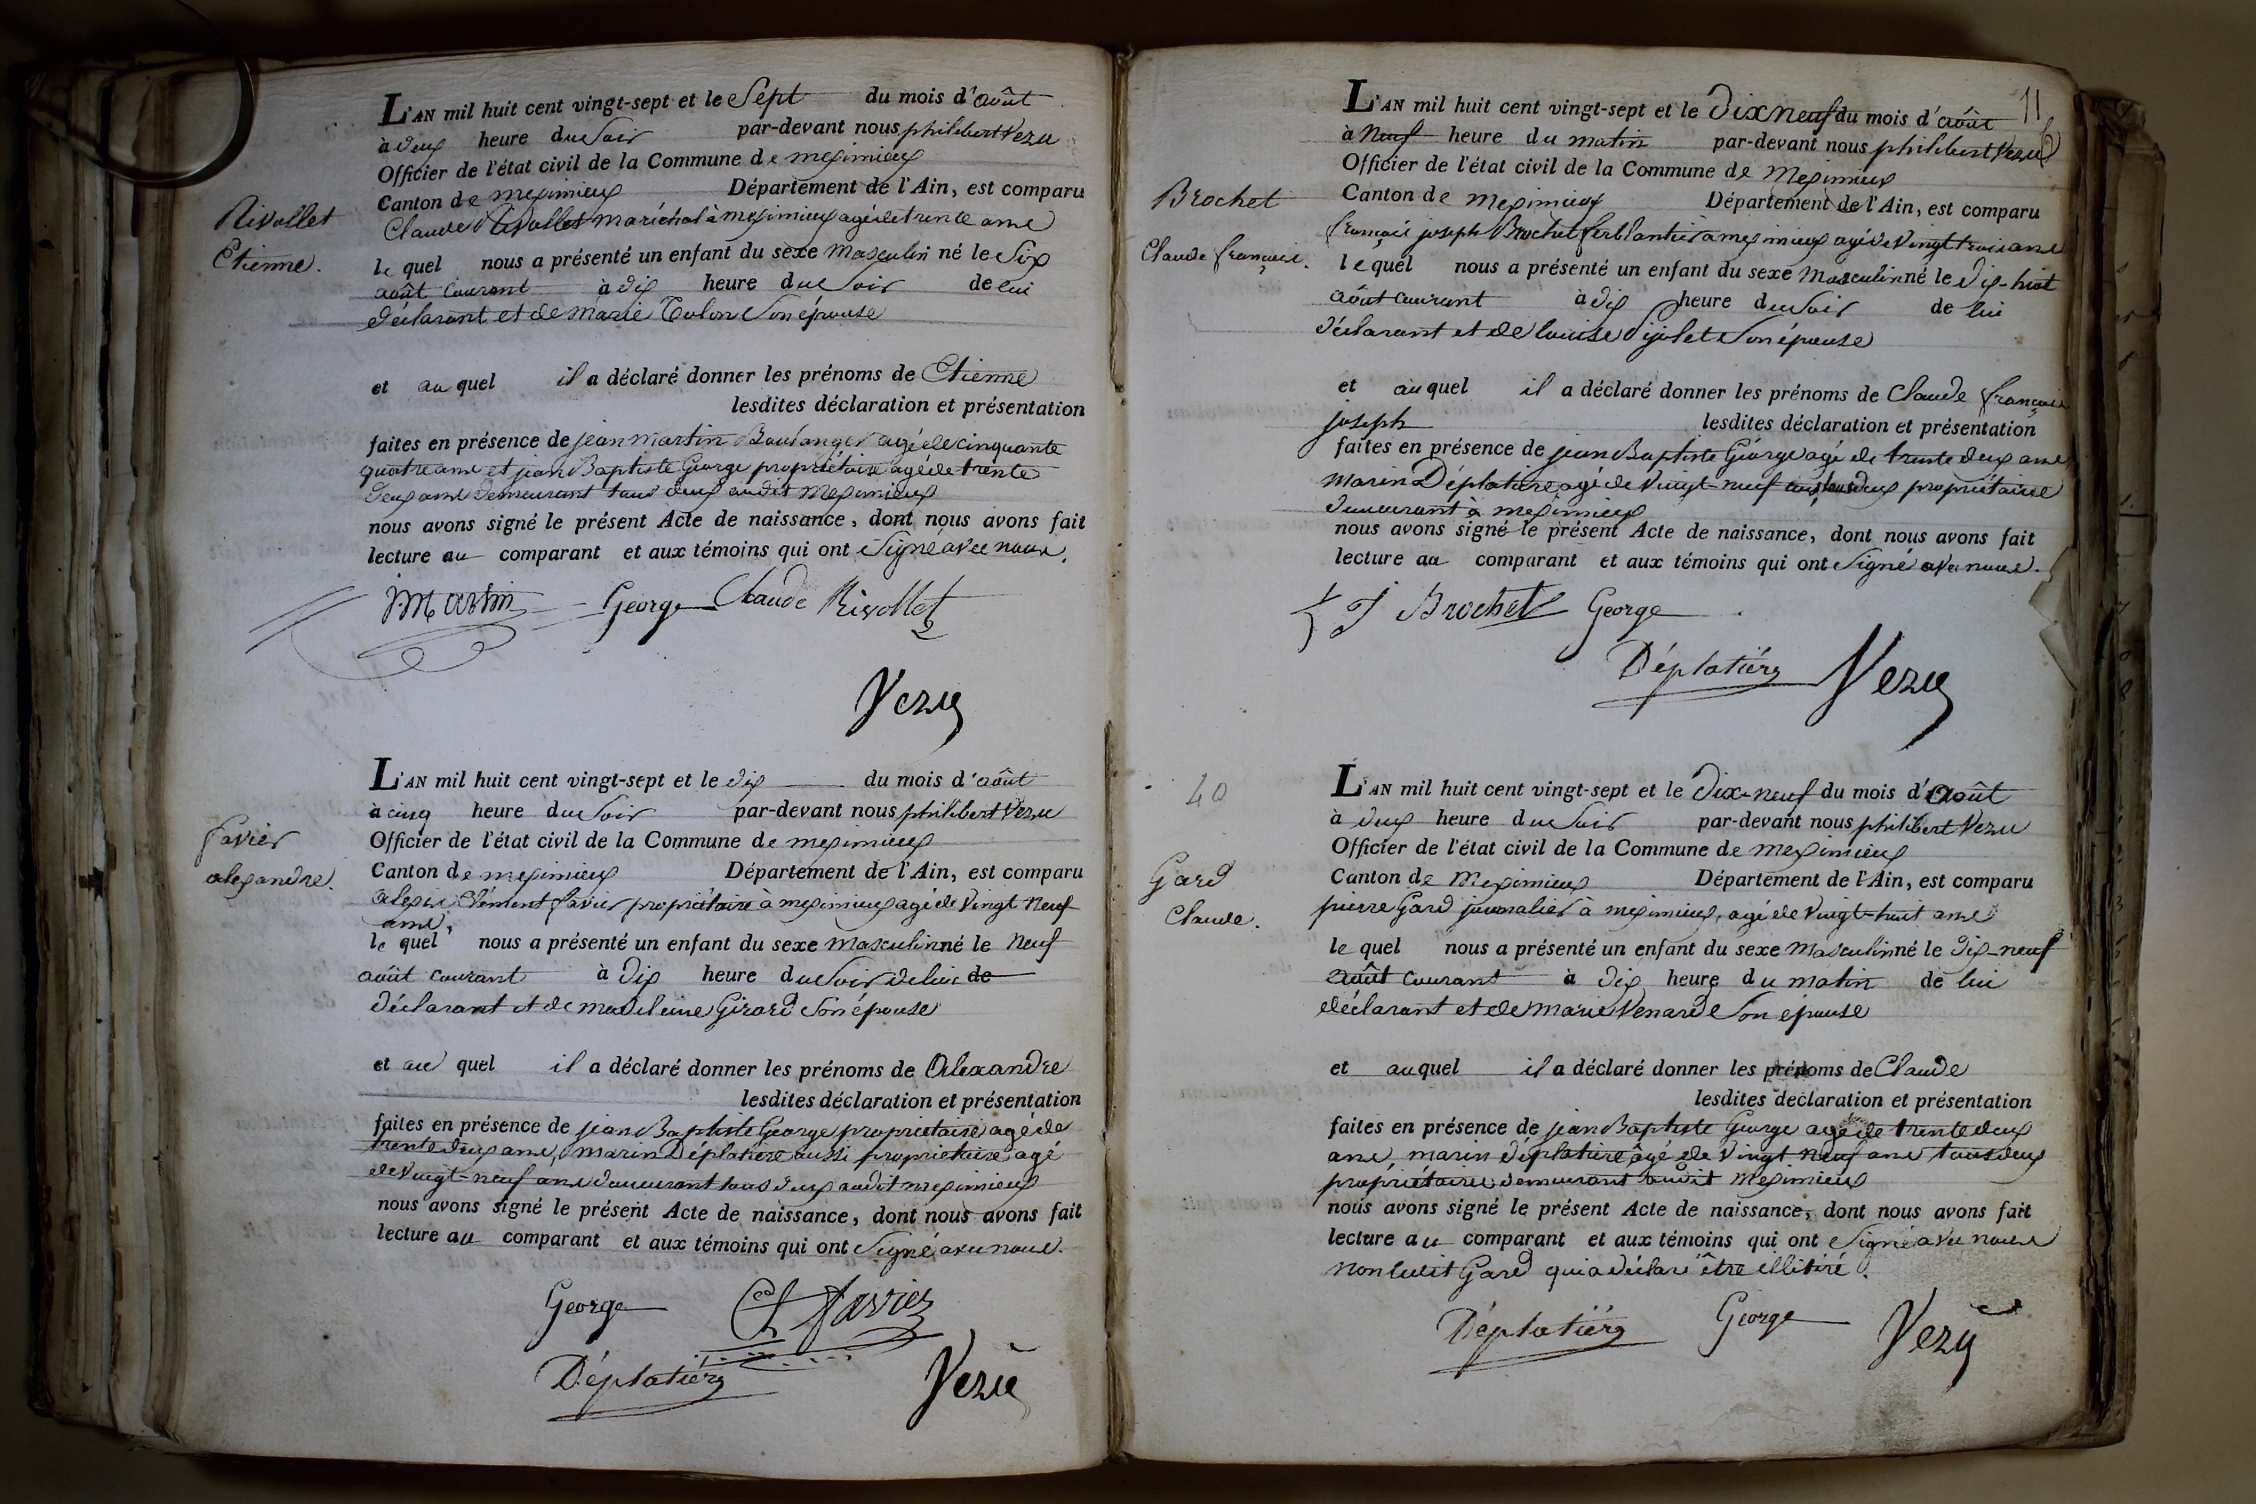 Rivollet
Etienne.
L'AN mil huit cent vingt-sept et le Sept du mois d'août
à deux heure du Soir par-devant nous philibert Vezu
Officier de l'état civil de la Commune de meximieux
Canton de meximieux Département de l'Ain, est comparu
Claude Rivollet maréchal à meximieux agé de trente ans
le quel nous a présenté un enfant du sexe masculin né le Six
août courant à dix heure du Soir de lui
déclarant et de marie Tolon Son épouse
et au quel il a déclaré donner les prénoms de Etienne
lesdites déclaration et présentation
faites en présence de jean martin Boulanger agé de cinquante
quatre ans et jean Baptiste George propriétaire agé de trente
deux ans demeurant tous deux audit meximieux
nous avons signé le présent Acte de naissance, dont nous avons fait
lecture au comparant et aux témoins qui ont Signé avec nous.
J. Martin George Claude Rivollet
Vezu
favier
alexandre.
L'AN mil huit cent vingt-sept et le dix du mois d'août
à cinq heure du Soir par-devant nous philibert Vezu
Officier de l'état civil de la Commune de meximieux
Canton de meximieux Département de l'Ain, est comparu
alexis Clément favier propriétaire à meximieux agé de vingt neuf
ans,
le quel nous a présenté un enfant du sexe masculin né le neuf
août courant à dix heure du Soir de lui de
déclarant et de madeleine Girard Son épouse
et au quel il a déclaré donner les prénoms de Alexandre
lesdites déclaration et présentation
faites en présence de jean Baptiste George propriétaire agé de
trente deux ans, marin Déplatière aussi propriétaire agé
de vingt-neuf ans demeurant tous deux audit meximieux
nous avons signé le présent Acte de naissance, dont nous avons fait
lecture au comparant et aux témoins qui ont Signé avec nous.
George Ct favier
Déplatière Vezu
11
Brochet
Claude françois.
L'AN mil huit cent vingt-sept et le Dix neuf du mois d'août
à neuf heure du matin par-devant nous philibert Vezu
Officier de l'état civil de la Commune de Meximieux
Canton de meximieux Département de l'Ain, est comparu
françois joseph Brochet ferblantier à meximieux agé de vingt trois ans
le quel nous a présenté un enfant du sexe masculin né le dix-huit
août courant à dix heure du Soir de lui
déclarant et de louise Pijolet Son épouse
et au quel il a déclaré donner les prénoms de Claude françois
joseph lesdites déclaration et présentation
faites en présence de jean Baptiste George agé de trente deux ans
marin Déplatière agé de vingt-neuf ans tous deux propriétaires
demeurant à meximieux
nous avons signé le présent Acte de naissance, dont nous avons fait
lecture au comparant et aux témoins qui ont Signé avec nous.
f J Brochet George
Déplatière Vezu
40
Gard
Claude.
L'AN mil huit cent vingt-sept et le Dix-neuf du mois d'Août
à deux heure du Soir par-devant nous philibert Vezu
Officier de l'état civil de la Commune de meximieux
Canton de Meximieux Département de l'Ain, est comparu
pierre Gard journalier à meximieux, agé de vingt-huit ans
le quel nous a présenté un enfant du sexe masculin né le dix-neuf
août courant à dix heure du matin de lui
déclarant et de marie Venard Son épouse
et au quel il a déclaré donner les prénoms de Claude
lesdites déclaration et présentation
faites en présence de jean Baptiste George agé de trente deux
ans, marin déplatière âgé de vingt neuf ans tous deux
propriétaires demeurant audit Meximieux
nous avons signé le présent Acte de naissance, dont nous avons fait
lecture au comparant et aux témoins qui ont Signé avec nous
non ledit Gard qui a déclaré être illitéré.
Déplatière George Vezu